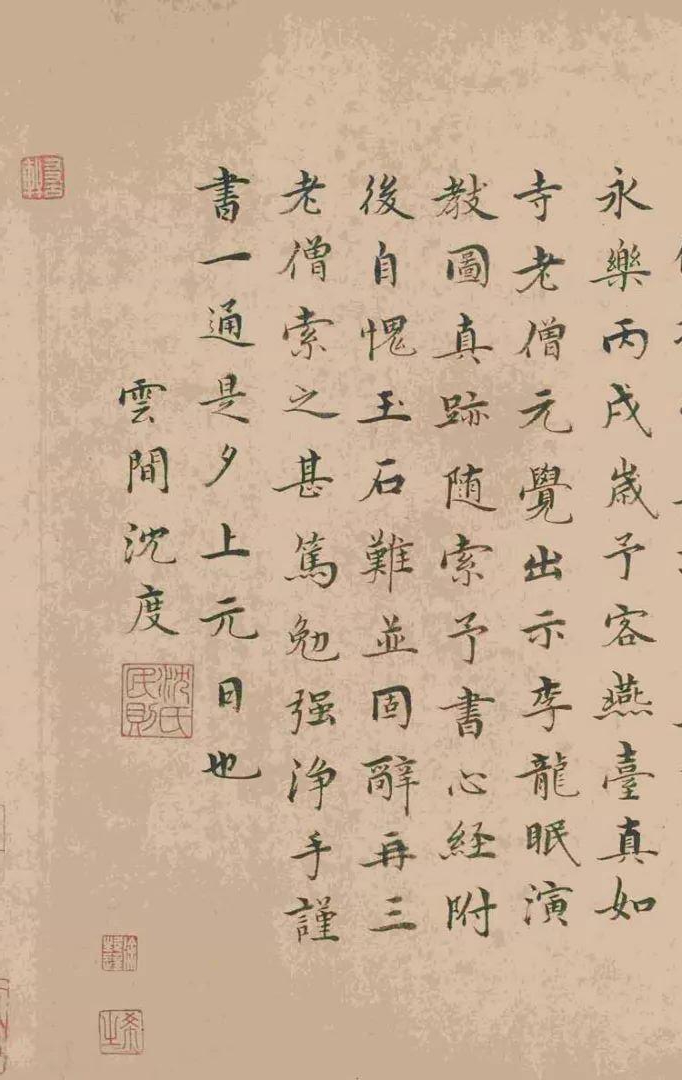 永樂丙戌嵗予客燕臺真如
寺老僧元覺出示李龍眠演
教圖真跡随索予書心經附
後自愧玉石難並固辭再三
老僧索之甚篤勉强浄手謹
書一通是夕上元日也
雲間沈度
沈氏民則